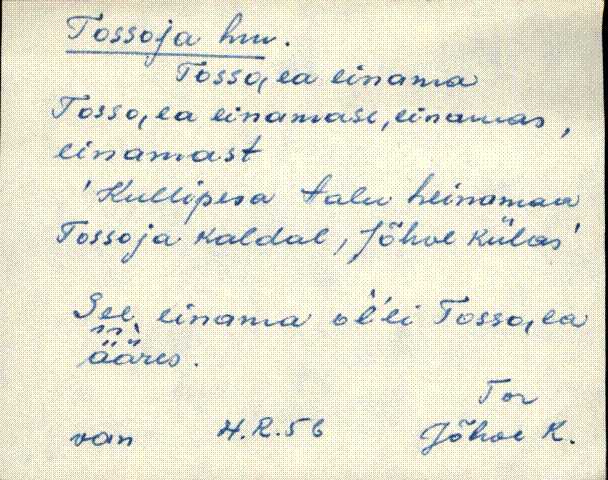 Tossoja hnn.
Tosso,ea einama
Tosso,ea einamase, einamas,
einamast
'Kullipesa talu heinamaa
Tossoja kaldal, Jõhve külas'
See einama ol'li Tosso,ea
ääres.
Tor
van H.R.56 Jõhve K.